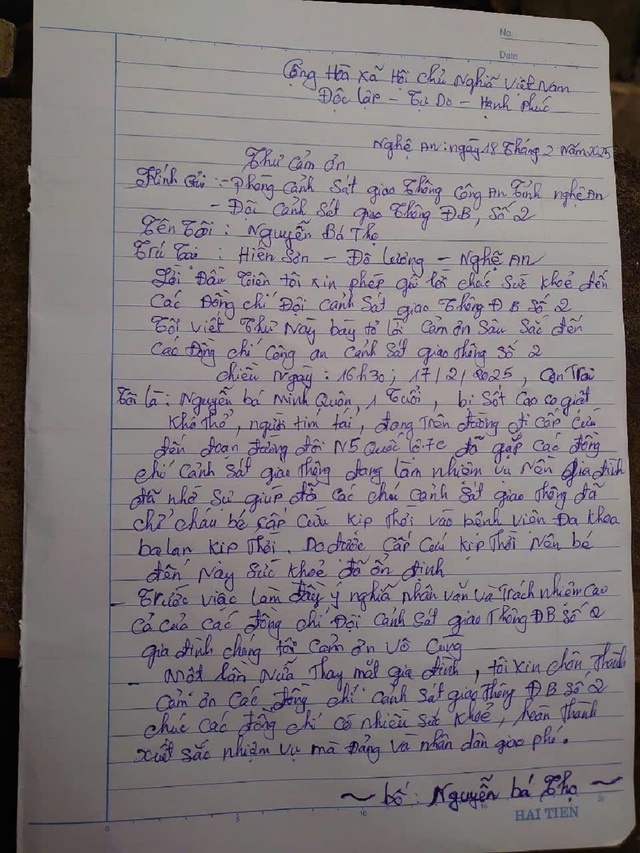 No.
Date
Cộng Hòa xã Hội chủ Nghĩa Việt Nam
Độc lập - Tự Do - Hạnh phúc
Nghệ An: ngày 18 Tháng 2 Năm 2025
Thư cảm ơn
Kính Gửi: - phòng cảnh Sát giao Thông Công An Tỉnh nghệ An
- Đội Cảnh Sát giao Thông ĐB, Số 2
Tên Tôi: Nguyễn Bá Thọ
Trú Tại: Hiến Sơn - Đô Lương - Nghệ An
Lời Đầu Tiên tôi xin phép gửi lời chúc Sức khoẻ đến
Các Đồng chí Đội Cảnh Sát giao Thông ĐB Số 2
Tôi viết Thư Này bày tỏ lời Cảm ơn Sâu Sắc đến
Các Đồng chí Công an Cảnh Sát giao Thông Số 2
chiều Ngày: 16h30; 17/2/2025, Con Trai
Tôi là: Nguyễn bá Minh Quân, 1 Tuổi, bị Sốt Cao co giật
Khó Thở, người tím tái, đang Trên đường đi Cấp Cứu
đến đoạn đường đôi N5 Quốc lộ 7c đã gặp các đồng
chí Cảnh Sát giao Thông đang làm nhiệm vụ Nên gia đình
đã nhờ Sự giúp đỡ các chú Cảnh Sát giao Thông đã
chở cháu bé cấp Cứu kịp Thời vào bệnh viện Đa khoa
ba lan kịp Thời. Do được Cấp Cứu kịp Thời Nên bé
đến Này Sức khoẻ đã ổn định
- Trước việc làm đầy ý nghĩa nhân văn và Trách nhiệm Cao
Cả của các đồng chí Đội Cảnh Sát giao Thông ĐB Số 2
gia đình chúng tôi Cảm ơn Vô Cùng
- Một lần Nữa Thay mặt gia đình, tôi xin chân Thành
Cảm ơn Các đồng chí Cảnh Sát giao Thông ĐB Số 2
chúc các đồng chí có nhiều Sức khoẻ, hoàn Thành
xuất sắc nhiệm vụ mà Đảng và nhân dân giao phó.
~ bố: Nguyễn bá Thọ ~
HAI TIEN
0
5
10
15
20